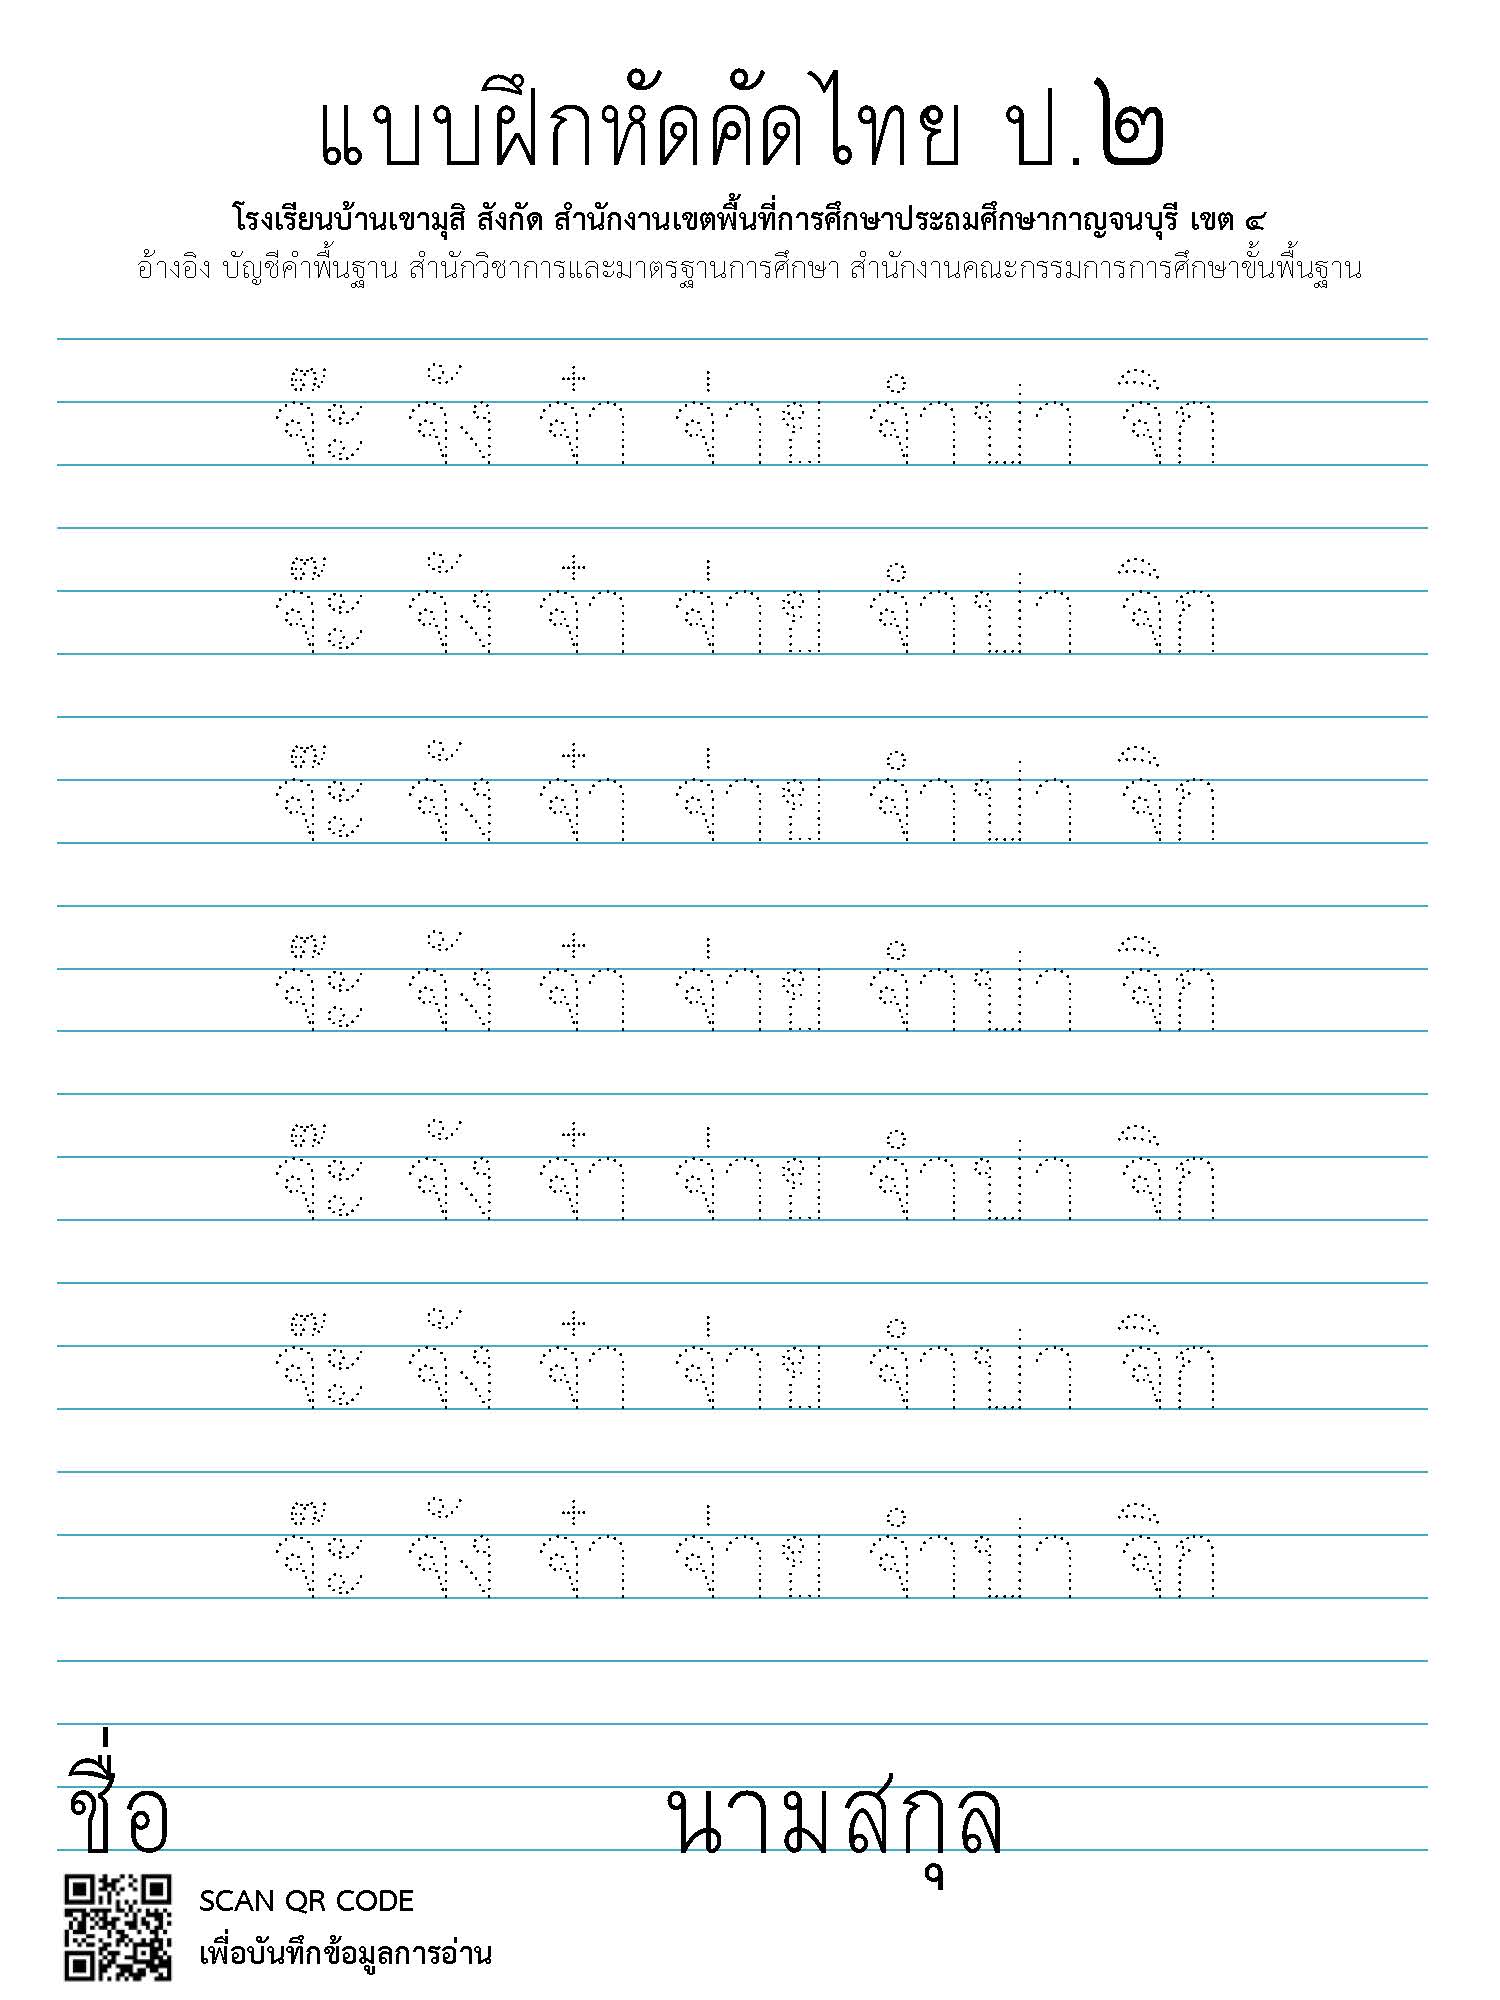 แบบฝึกหัดคัดไทย ป.๒
โรงเรียนบ้านเขามุสิ สังกัด สำนักงานเขตพื้นที่การศึกษาประถมศึกษากาญจนบุรี เขต ๔
อ้างอิง บัญชีคำพื้นฐาน สำนักวิชาการและมาตรฐานการศึกษา สำนักงานคณะกรรมการการศึกษาขั้นพื้นฐาน
จ๊ะ จัง จ๋า จ่าย จำปา จิก
จ๊ะ จัง จ๋า จ่าย จำปา จิก
จ๊ะ จัง จ๋า จ่าย จำปา จิก
จ๊ะ จัง จ๋า จ่าย จำปา จิก
จ๊ะ จัง จ๋า จ่าย จำปา จิก
จ๊ะ จัง จ๋า จ่าย จำปา จิก
จ๊ะ จัง จ๋า จ่าย จำปา จิก
ชื่อ นามสกุล
SCAN QR CODE
เพื่อบันทึกข้อมูลการอ่าน